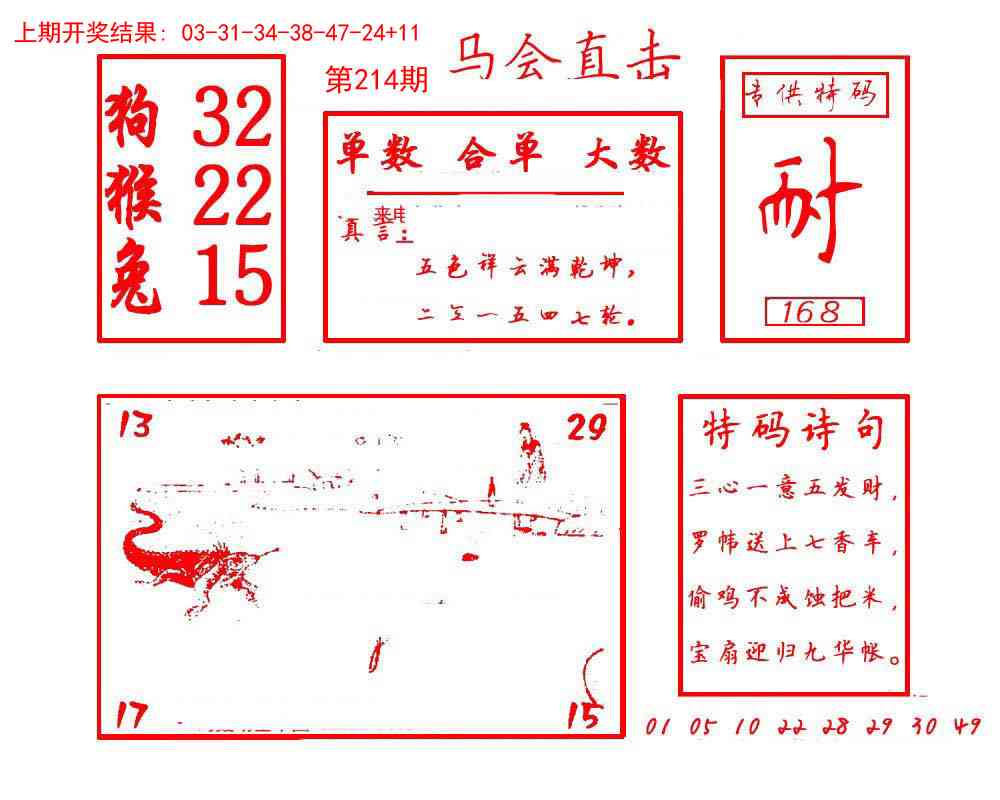 上期开奖结果: 03-31-34-38-47-24+11
第214期
马会直击
狗 32
猴 22
兔 15
单数 合单 大数
来电
真言:
五色祥云满乾坤,
二三一五四七轮。
专供特码
耐
168
13 29
17 15
特码诗句
三心一意五发财,
罗帏送上七香车,
偷鸡不成蚀把米,
宝扇迎归九华帐。
01 05 10 22 28 29 30 49